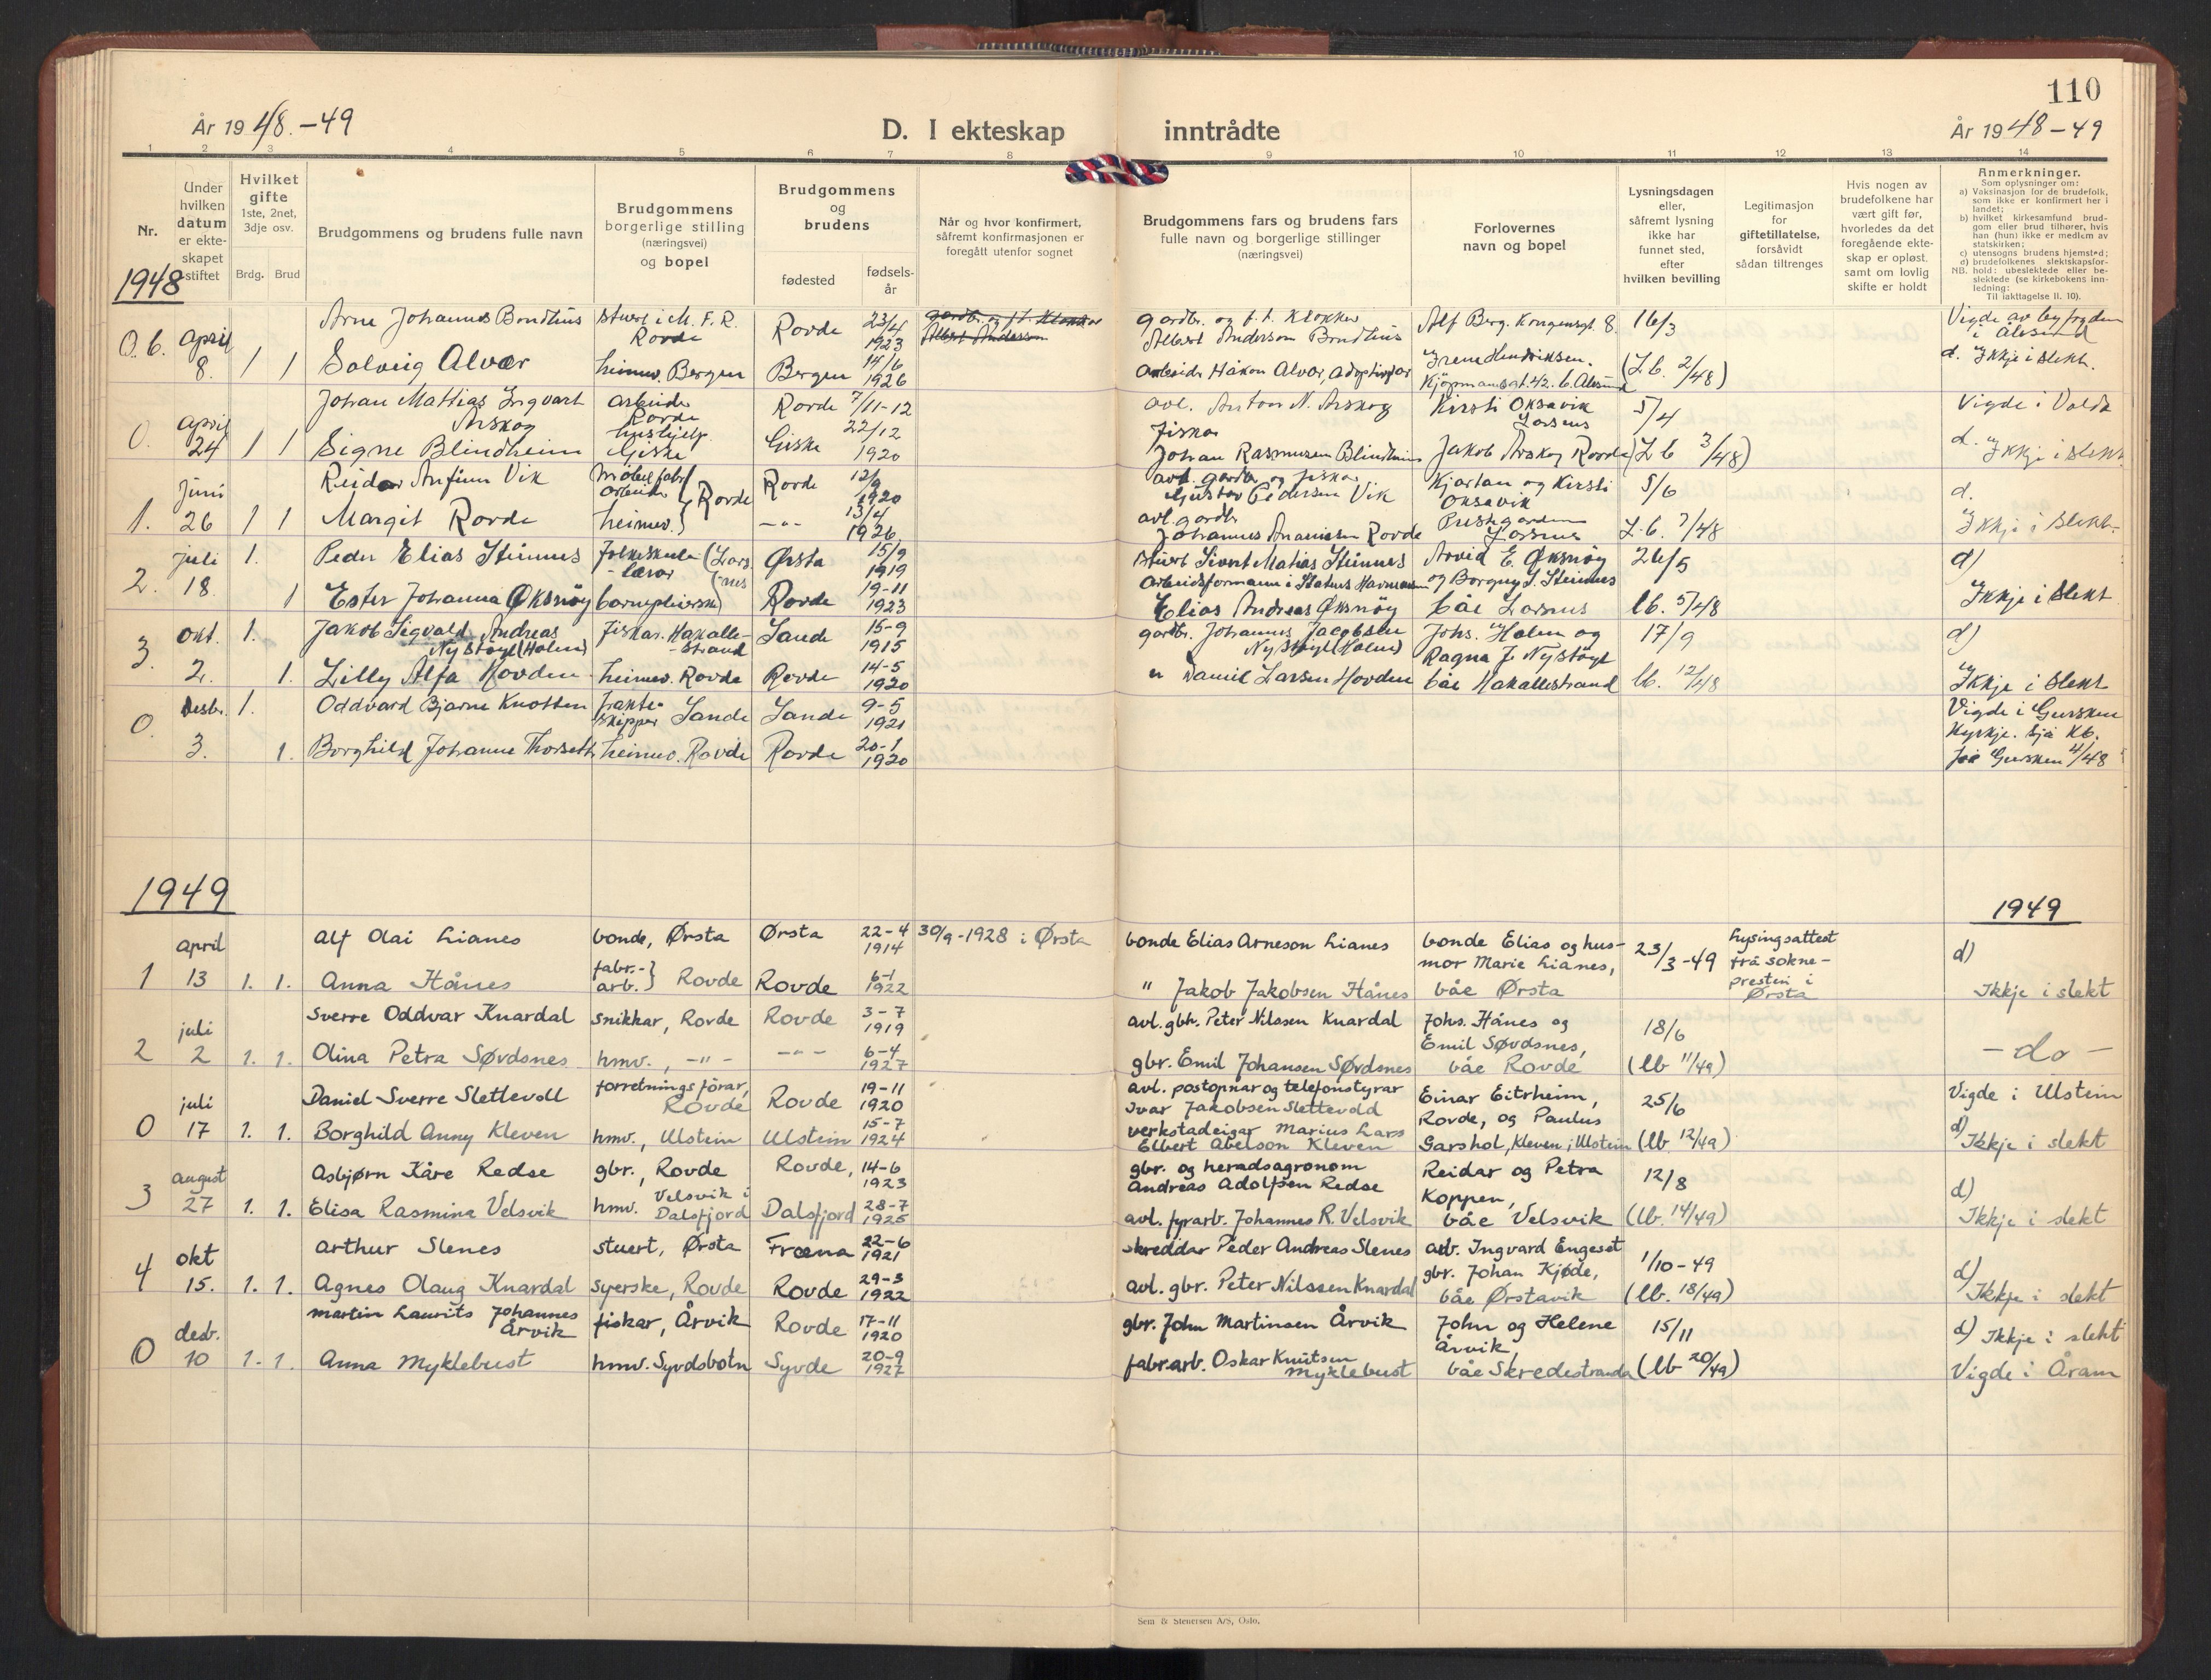 110
År 1948.-49
D. I ekteskap inntrådte
År 1948-49
1 2 3 4 5 6 7 8 9 10 11 12 13 14
Nr.
Under hvilken datum er ekte-skapet stiftet
Hvilket gifte 1ste, 2net, 3dje osv.
Brdg. Brud
Brudgommens og brudens fulle navn
Brudgommens borgerlige stilling (næringsvei) og bopel
Brudgommens og brudens
fødested
fødsels-år
Når og hvor konfirmert, såfremt konfirmasjonen er foregått utenfor sognet
Brudgommens fars og brudens fars fulle navn og borgerlige stillinger (næringsvei)
Forlovernes navn og bopel
Lysningsdagen eller, såfremt lysning ikke har funnet sted, efter hvilken bevilling
Legitimasjon for giftetillatelse, forsåvidt sådan tiltrenges
Hvis nogen av brudefolkene har vært gift før, hvorledes da det foregående ekte-skap er opløst. samt om lovlig skifte er holdt
Anmerkninger.
Som oplysninger om:
a) Vaksinasjon for de brudefolk, som ikke er konfirmert her i landet;
b) hvilket kirkesamfund brud-gom eller brud tilhører, hvis han (hun) ikke er medlem av statskirken;
c) utensogns brudens hjemsted;
d) brudefolkenes slektskapsfor-hold: ubeslektede eller be-slektede (se kirkebokens inn-ledning:
NB.
Til iakttagelse II. 10).
1948
O.b. April 8. 1 1
Arne Johannes Bondhus stuert i M.F.R. Rovde Rovde 23/4 1923
gardbr. og f.t. klokkar Albert Anderson
gardbr. og f.t. klokkar Albert Anderson Bondhus
Alf Berg. Kongensgt. 8. 16/3
Vigde av byfogden i Ålesund
Solveig Alvær heimev. Bergen Bergen 14/6 1926
arbeidr Håkon Alvær, adoptivfar
Irene Hendriksen. Kjøpmannsgt. 42. b. Ålesund (L.b. 2/48)
d. Ikkje i slekt.
O. April 24 1 1
Johan Mattias Ingvart Årskog arbeidar Rovde Rovde 7/11-12
avl. Anton N. Årskog fiskar
Kirsti Oksavik Larsnes 5/4
Vigde i Volda
Signe Blindheim hushjelp. Giske Giske 22/12 1920
Johan Rasmussen Blindheim
Jakob Årskog Rovde (L b 3/48)
d. Ikkje i slekt
1. Juni 26 1 1
Reidar Anfinn Vik møbelfabr. arbeidar } Rovde Rovde 12/9 1920
avl. gardbr. og fiskar Gustav Pedersen Vik
Kjartan og Kirsti Oksavik 5/6
d.
Margit Rovde heimev. } -"- 13/4 1926
avl. gardbr Johannes Ananiassen Rovde
Prestegarden Larsnes L.b. 7/48
Ikkje i slekt-
2. juli 18. 1.
Peder Elias Steinnes folkeskule-lærar (Lars-nes Ørsta 15/9 1919
stuert Sivert Matias Steinnes
Arvid E. Øksnøy 26/5
d)
1 Ester Johanna Øksnøy barnepleierske) Rovde 19-11 1923
arbeidsformann i Statens Havnevesen Elias Andreas Øksnøy
og Borgny S. Steinnes båe Larsnes lb. 5/48
Ikkje i slekt
3. okt. 2. 1.
Jakob Sigvald Andreas Nystøyl (Holen) fiskar. Hakalle-strand Sande 15-9 1915
gardbr. Johannes Jacobsen Nystøyl (Holen)
Johs. Holen og 17/9
d)
1. Lilly Alfa Hovden heimev. Rovde Rovde 14-5 1920
" Daniel Larsen Hovden
Ragna J. Nystøyl båe Hakallestrand lb. 12/48
Ikkje i slekt
O. desbr. 3. 1.
Oddvard Bjarne Knotten frakte-skipper Sande Sande 9-5 1921
Vigde i Gursken Kyrkje. Sjå kb.
1. Borghild Johanne Thorseth heimev. Rovde Rovde 20-1 1920
for Gursken 4/48
1949
1949
1 april 13 1. 1.
Alf Olai Lianes bonde, Ørsta Ørsta 22-4 1914 30/9-1928 i Ørsta
bonde Elias Arneson Lianes
bonde Elias og hus-mor Marie Lianes, 23/3-49
Lysingsattest frå sokne-presten i Ørsta
d)
Anna Hånes fabr.-arb. } Rovde Rovde 6-1 1922
" Jakob Jakobsen Hånes båe Ørsta
Ikkje i slekt
2 juli 2 1. 1.
Sverre Oddvar Knardal snikkar, Rovde Rovde 3-7 1919
avl. gbr. Peter Nilssen Knardal
Johs. Hånes og Emil Søvdsnes, 18/6
Olina Petra Søvdsnes hmv., -"- -"- 6-4 1927
gbr. Emil Johansen Søvdsnes båe Rovde (lb 11/49)
-do-
0 juli 17 1. 1.
Daniel Sverre Slettevoll forretningsførar, Rovde Rovde 19-11 1920
avl. postopnar og telefonstyrar Ivar Jakobsen Slettevold
Einar Eitrheim, Rovde, og Paulus 25/6
Vigde i Ulstein
Borghild Anny Kleven hmv., Ulstein Ulstein 15-7 1924
verkstadeigar Marius Lars Elbert Abelson Kleven
Garshol, Kleven, Ulstein (lb 12/49)
d) Ikkje i slekt
3 august 27 1. 1.
Asbjørn Kåre Redse gbr., Rovde Rovde, 14-6 1923
gbr. og heradsagronom Andreas Adolfsen Redse
Reidar og Petra Koppen, 12/8
d)
Elisa Rasmina Velsvik hmv. Velsvik i Dalsfjord Dalsfjord 28-7 1925
avl. fyrarb. Johannes R. Velsvik båe Velsvik (lb. 14/49)
Ikkje i slekt
4 okt 15. 1. 1.
Arthur Slenes stuert, Ørsta Fræna 22-6 1921
skreddar Peder Andreas Slenes
arb. Ingvard Engeset gbr. Johan Kjøde, 1/10-49
d)
Agnes Olaug Knardal syerske, Rovde Rovde 29-3 1922
avl. gbr. Peter Nilssen Knardal båe Ørstavik (lb. 18/49)
Ikkje i slekt
0 desbr. 10 1. 1.
Martin Laurits Johannes Årvik fiskar, Årvik Rovde 17-11 1920
gbr. John Martinsen Årvik
John og Helene Årvik 15/11
d) Ikkje i slekt
Anna Myklebust hmv. Syvdsbotn Syvde 20-9 1927
fabr.arb. Oskar Knutsen Myklebust båe Skredestranda (lb 20/49)
Vigde i Åram
Sem & Stenersen A/S, Oslo.